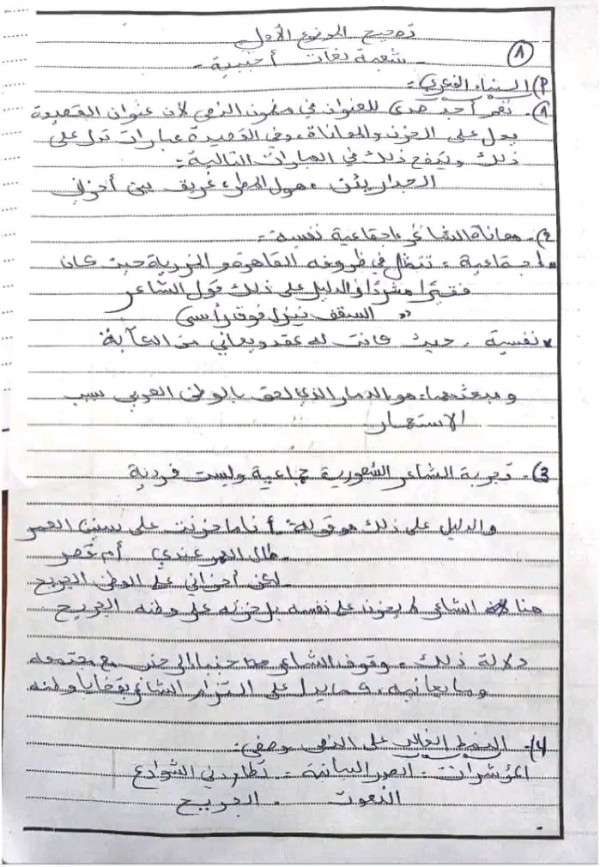 تصحيح الموضوع الأول
- شعبة لغات أجنبية -
1
P) البناء الفكري :
1). نعم أجد صدى للعنوان في مضمون النص لأن عنوان القصيدة
يدل على الحزن والمعاناة، وفي القصيدة عبارات تدل على
ذلك ويتضح ذلك في العبارات التالية :
الجدار يئن ، هول المطر، غريق بين أحزاني
2). معاناة الشاعر اجتماعية نفسية :
اجتماعية : تتمثل في ظروفه القاهرة و المزرية حيث كان
فقيرا مشردا والدليل على ذلك قول الشاعر
" السقف ينزل فوق رأسي
* نفسية : حيث كانت له عقد ويعاني من الكآبة
ومبعثهما، هو الدمار الذي لحق بالوطن العربي بسبب
الاستعمار
3). تجربة الشاعر الشعورية جماعية وليست فردية
والدليل على ذلك هو قوله : أنا ما حزنت على سنين العمر
طال العمر عندي أم قصر
لكن أحزاني على الوطن الجريح
هنا الشاعر لا يحزن على نفسه بل حزنه على وطنه الجريح
دلالة ذلك ، وقوف الشاعر جنبا إلى جنب مع مجتمعه
وما يعانيه ، مما يدل على التزام الشاعر بقضايا وطنه
4). النمط الغالب على النص وصفي :
المؤشرات : الصور البيانية : تطاردني الشوارع
النعوت : الجريح